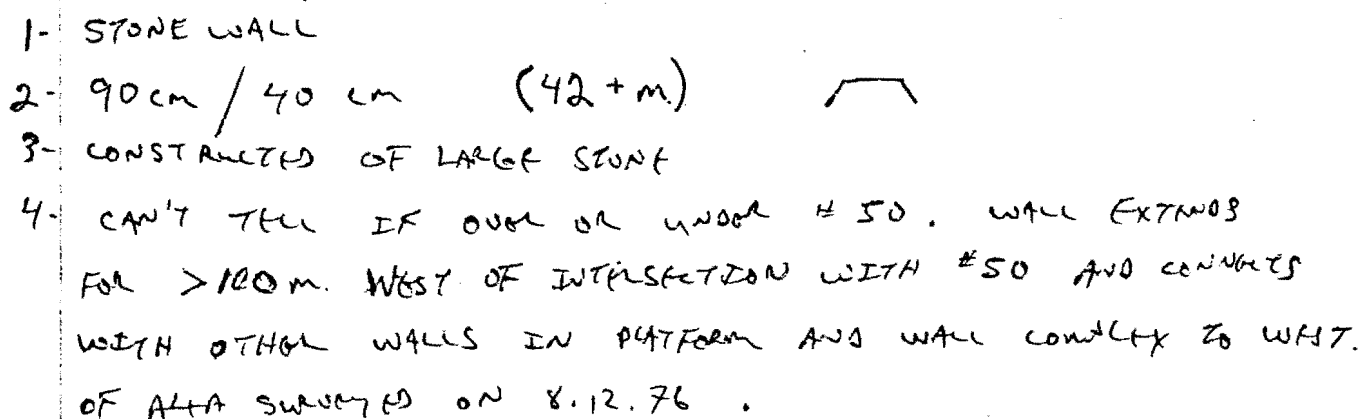 1- STONE WALL
2- 90 cm / 40 cm (42 + m.)
3- CONSTRUCTED OF LARGE STONE
4- CAN'T TELL IF OVER OR UNDER # 50. WALL EXTENDS
FOR >100 m. WEST OF INTERSECTION WITH #50 AND CONNECTS
WITH OTHER WALLS IN PLATFORM AND WALL COMPLEX TO WEST.
OF AREA SURVEYED ON 8.12.76 .